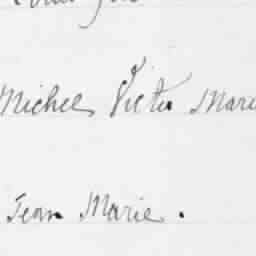 Michel Victor Marie
Jean Marie.